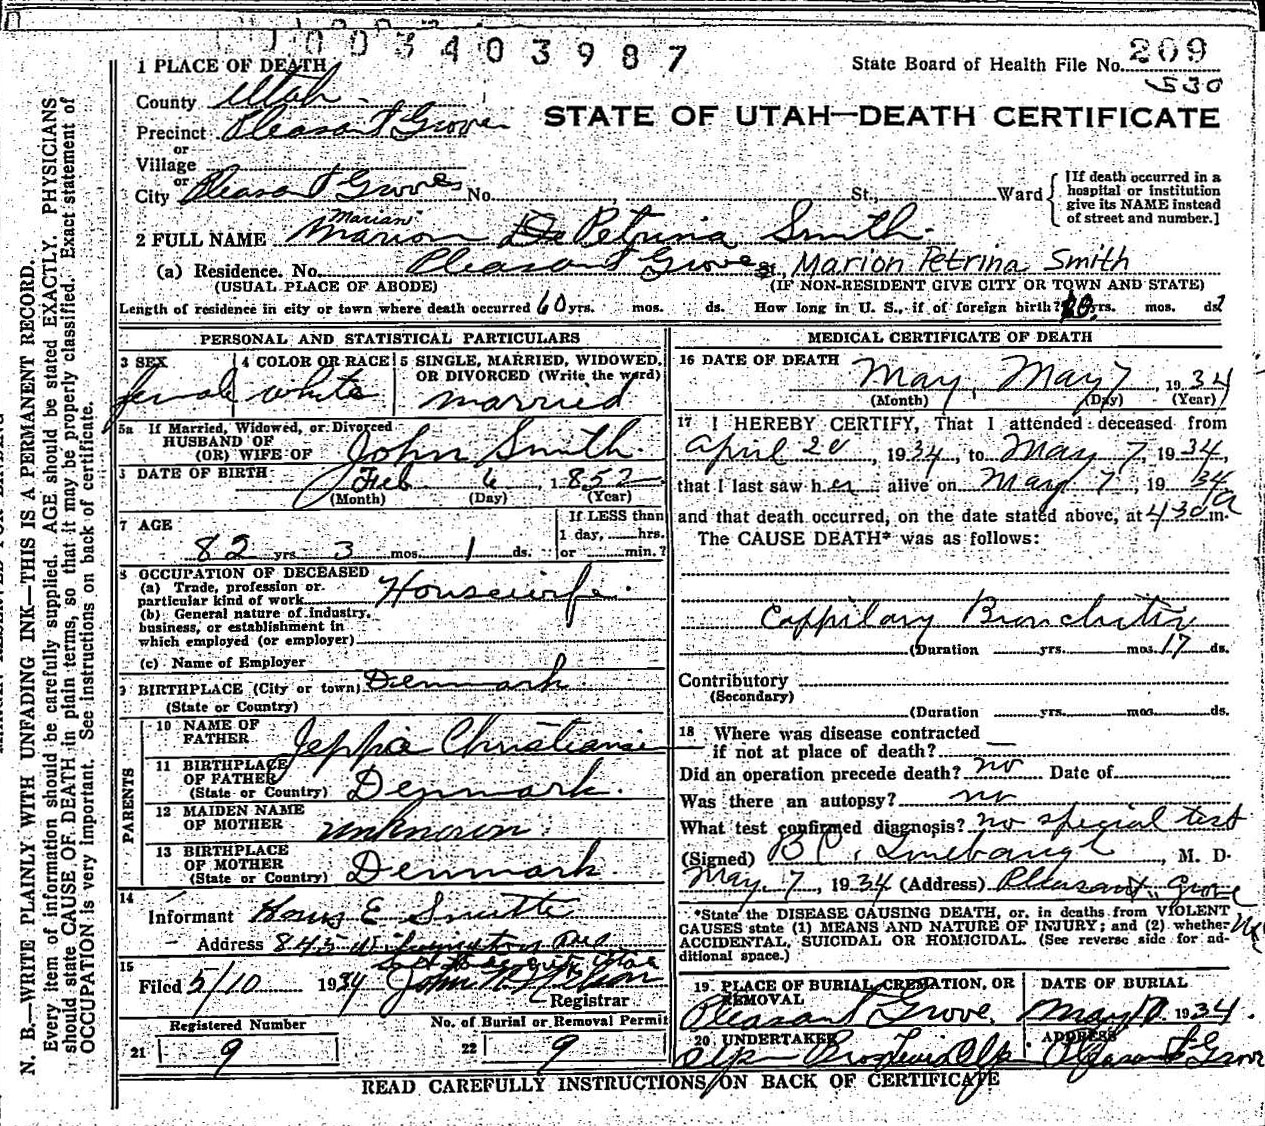 1003403987
1 PLACE OF DEATH
State Board of Health File No. 209
530
County Utah
STATE OF UTAH—DEATH CERTIFICATE
Precinct Pleasant Grove
or
Village
or
City Pleasant Grove No. St., Ward
[If death occurred in a
hospital or institution
give its NAME instead
of street and number.]
Marian
2 FULL NAME Marion De Petrina Smith
(a) Residence. No. Pleasant Grove St., Marion Petrina Smith
(USUAL PLACE OF ABODE) (IF NON-RESIDENT GIVE CITY OR TOWN AND STATE)
Length of residence in city or town where death occurred 60 yrs. mos. ds. How long in U. S., if of foreign birth? yrs. mos. ds.
PERSONAL AND STATISTICAL PARTICULARS
3 SEX 4 COLOR OR RACE 5 SINGLE, MARRIED, WIDOWED,
OR DIVORCED (Write the word)
female white married
5a If Married, Widowed, or Divorced
HUSBAND OF
(OR) WIFE OF John Smith
DATE OF BIRTH Feb 6, 1852
(Month) (Day) (Year)
7 AGE If LESS than
1 day, hrs.
82 yrs. 3 mos. 1 ds. or min.?
8 OCCUPATION OF DECEASED
(a) Trade, profession or
particular kind of work Housewife
(b) General nature of industry,
business, or establishment in
which employed (or employer)
(c) Name of Employer
9 BIRTHPLACE (City or town) Denmark
(State or Country)
PARENTS
10 NAME OF
FATHER Jeppa
11 BIRTHPLACE
OF FATHER
(State or Country) Denmark.
12 MAIDEN NAME
OF MOTHER unknown
13 BIRTHPLACE
OF MOTHER
(State or Country) Denmark.
14
Informant E
Address 845
15
Filed 5/10 1934 John
Registrar
Registered Number No. of Burial or Removal Permit
21 9 22 9
MEDICAL CERTIFICATE OF DEATH
16 DATE OF DEATH May, May 7, 1934
(Month) (Day) (Year)
17 I HEREBY CERTIFY, That I attended deceased from
April 20, 1934, to May 7, 1934,
that I last saw her alive on May 7, 1934
and that death occurred, on the date stated above, at 430 a m.
The CAUSE DEATH* was as follows:
Cappilary Bronchitis
(Duration yrs. mos. 17 ds.
Contributory
(Secondary)
(Duration yrs. mos. ds.
18 Where was disease contracted
if not at place of death?
Did an operation precede death? no Date of
Was there an autopsy? no
What test confirmed diagnosis? no special test
(Signed) B C, Linebaugh, M. D.
May. 7, 1934 (Address) Pleasant Grove
*State the DISEASE CAUSING DEATH, or, in deaths from VIOLENT
CAUSES state (1) MEANS AND NATURE OF INJURY; and (2) whether
ACCIDENTAL, SUICIDAL OR HOMICIDAL. (See reverse side for ad-
ditional space.)
19 PLACE OF BURIAL, CREMATION, OR
REMOVAL DATE OF BURIAL
Pleasant Grove. May 10 1934.
20 UNDERTAKER ADDRESS
Pleasant Grove
READ CAREFULLY INSTRUCTIONS ON BACK OF CERTIFICATE
N. B.—WRITE PLAINLY WITH UNFADING INK—THIS IS A PERMANENT RECORD.
Every item of information should be carefully supplied. AGE should be stated EXACTLY. PHYSICIANS
should state CAUSE OF DEATH in plain terms, so that it may be properly classified. Exact statement of
OCCUPATION is very important. See instructions on back of certificate.